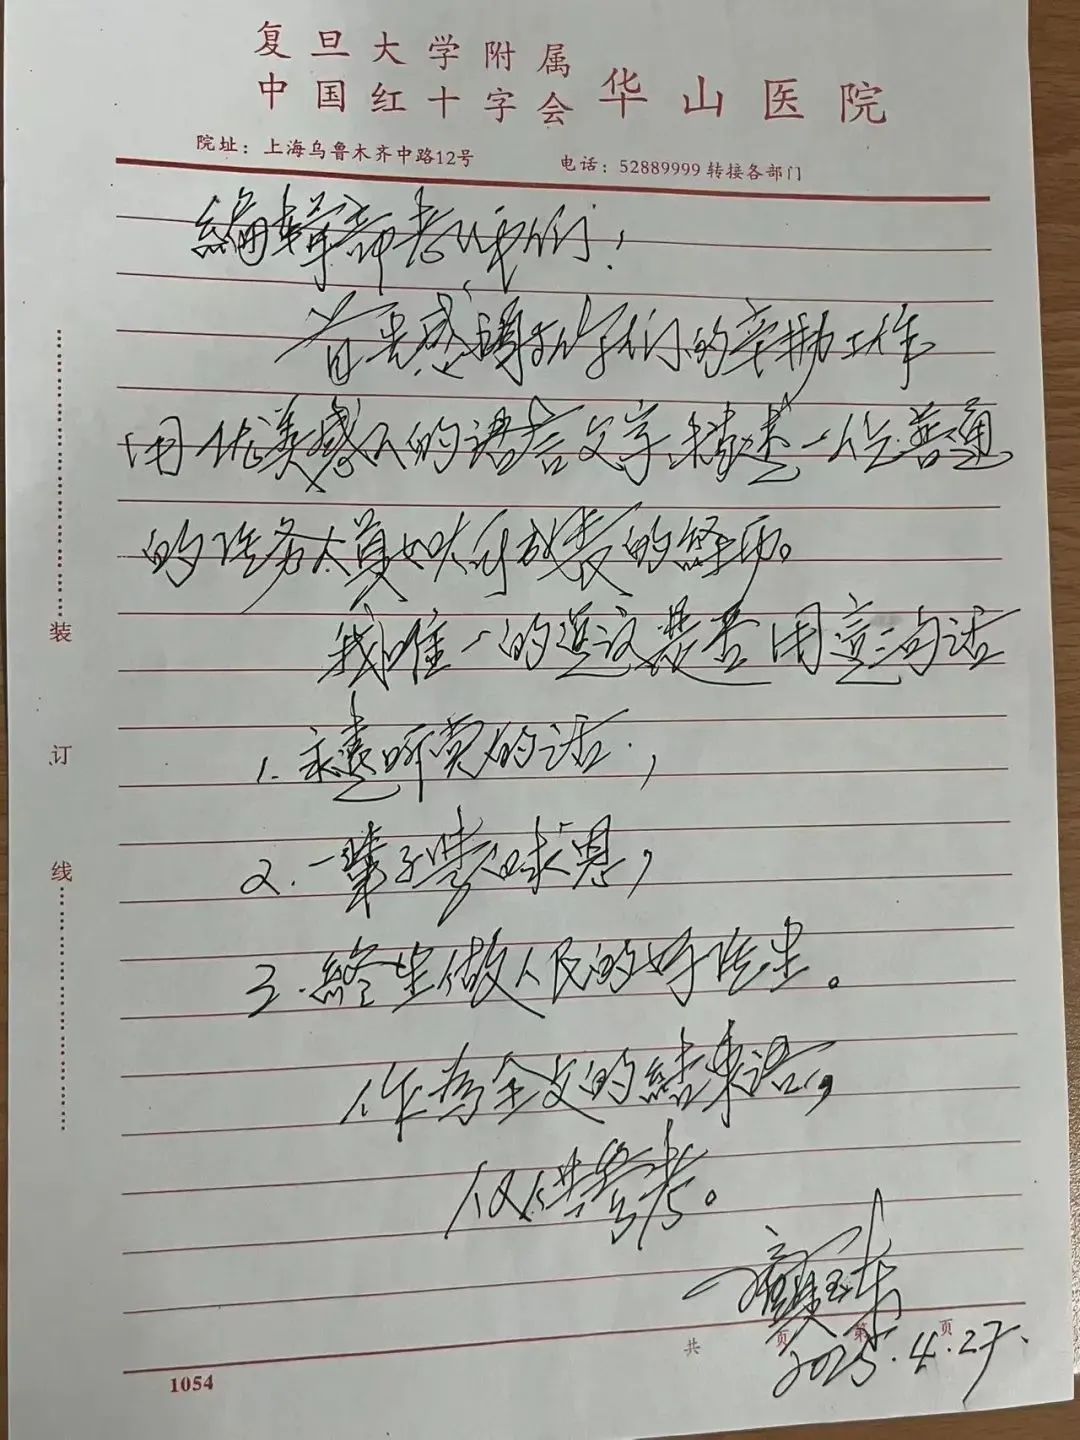 复旦大学附属
中国红十字会 华山医院
院址：上海乌鲁木齐中路12号 电话：52889999转接各部门
编辑部老师们：
首要感谢老师们的辛勤工作
用优美感人的语言文字描述一位普通
的医务人员如大的经历。
我唯一的建议是否用这三句话
1. 永远听党的话，
2. 一辈子学白求恩，
3. 终生做人民的好医生。
作为全文的结束语，
仅供参考。
2025.4.27.
共 页 第 页
1054
装
订
线